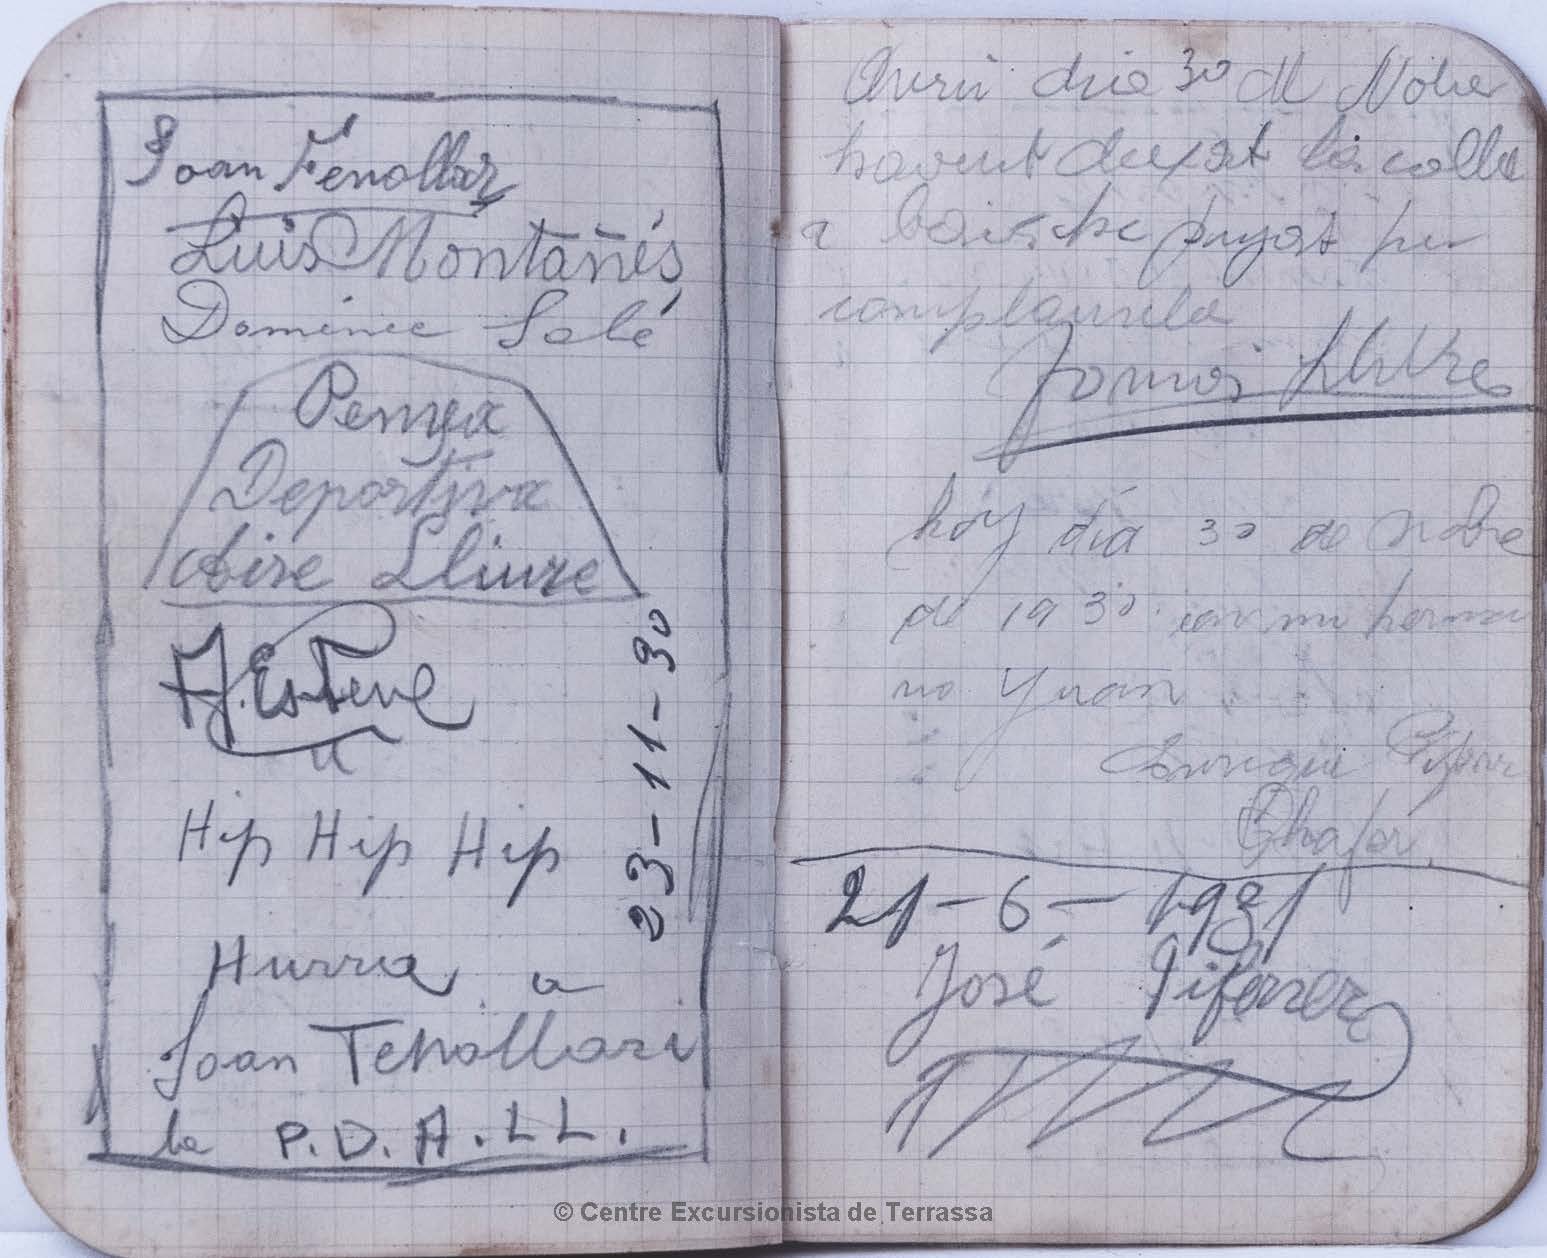 Joan Fenollar
Luis Montañés
Domènec Solé
Penya
Deportiva
Aire Lliure
J. Esteve
23-11-30
Hip Hip Hip
Hurra a
Joan Fenollar i
la P.D.A.LL.
Avui dia 30 de Nobre
havent deixat la colla
a baix he pujat per
complaurela
hoy día 30 de Nobre
de 1930 con mi herma
no Yuan
Enrique Piferrer
21-6-1931
José Piferrer
© Centre Excursionista de Terrassa